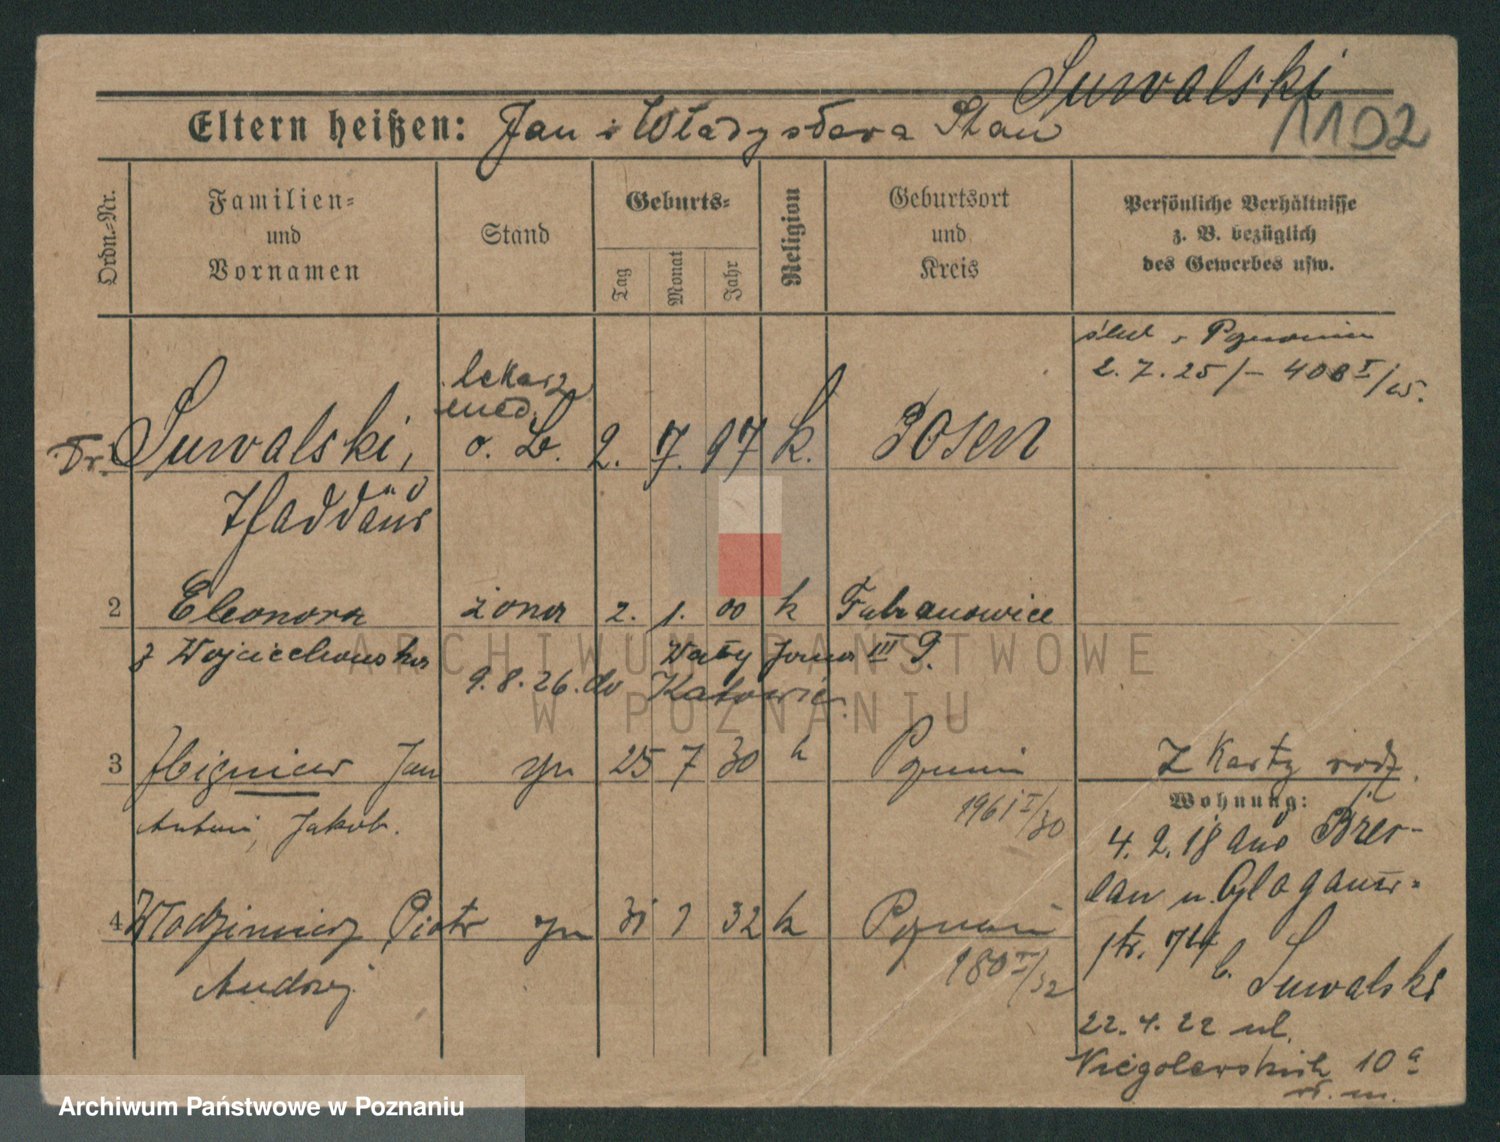 Suwalski
1102
Eltern heißen: Jan i Władysława Stan
Ordn.-Nr.
Familien=
und
Vornamen
Stand
Geburts=
Tag
Monat
Jahr
Religion
Geburtsort
und
Kreis
Persönliche Verhältnisse
z. B. bezüglich
des Gewerbes usw.
ślub w Poznaniu
2.7.25/- 408 I/25.
lekarz
med.
Dr. Suwalski, o. B. 2. 7. 97 k. Posen
Thaddäus
2 Eleonora żona 2. 1. 00 k Fabianowice
z Wojciechowska Wały Jana III 9.
9.8.26. do Katowic.
3 Zbigniew Jan syn 25 7 30 k Poznań
Antoni, Jakob.
1961 I/30
Z Karty rodz.
Wohnung:
4. 2. 18 aus Bres-
lau u. Glogauer-
str. 74 b. Suwalski
4 Włodzimierz Piotr syn 31 1 32 k Poznań
Andrzej
180 I/32
22.4.22 ul.
Niegolewskich 10a
ARCHIWUM PAŃSTWOWE
W POZNANIU
Archiwum Państwowe w Poznaniu